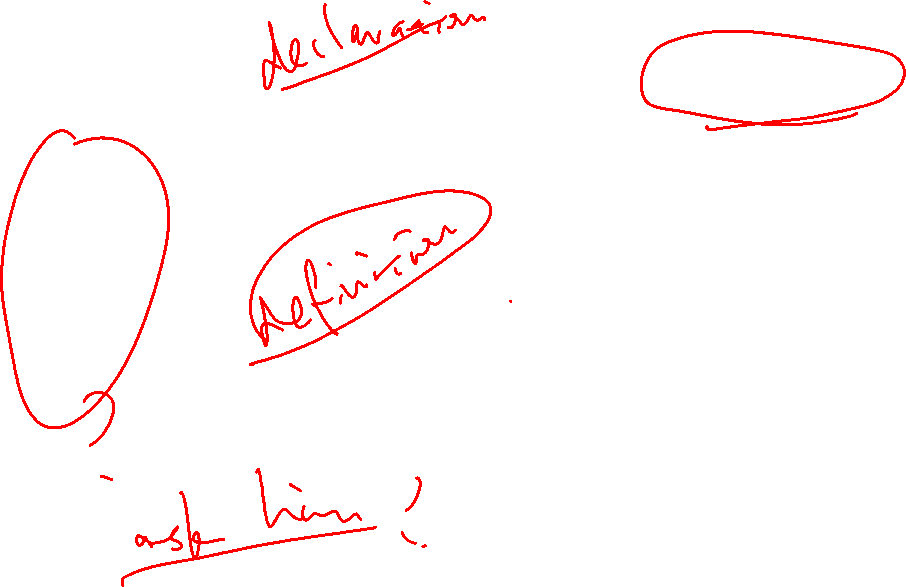 declaration
definition
ask him?